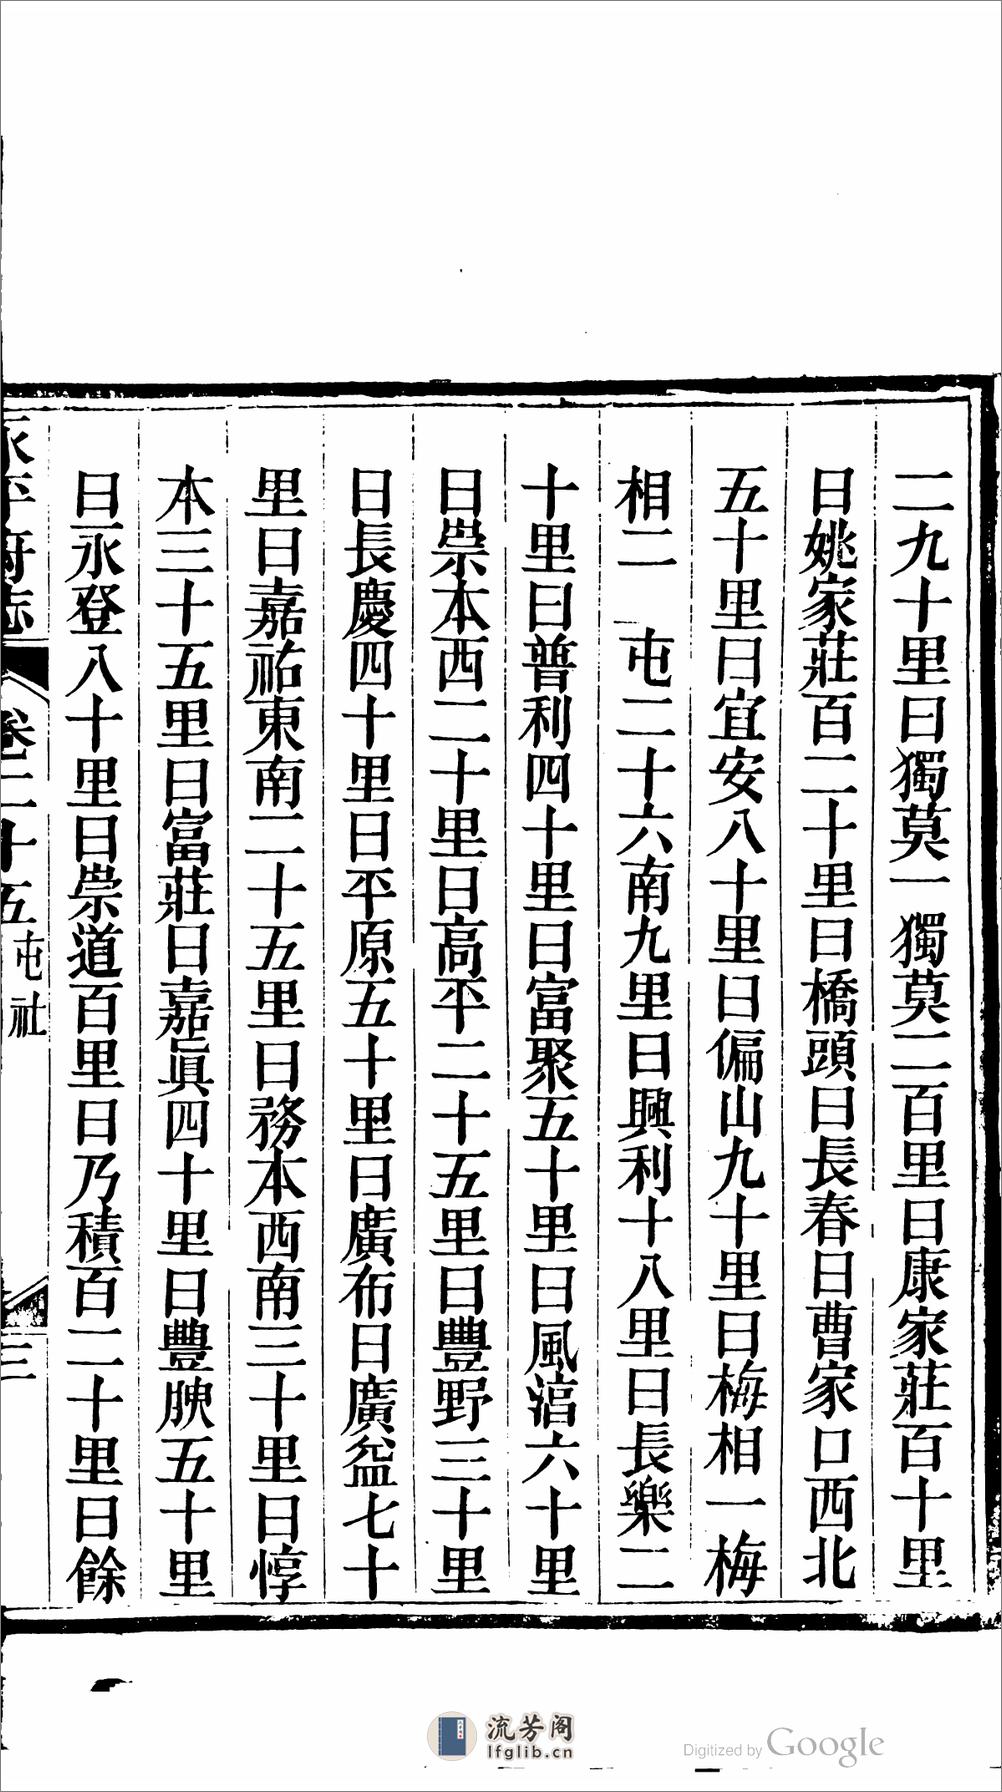 二九十里曰獨莫一獨莫二百里曰康家莊百十里
曰姚家莊百二十里曰橋頭曰長春曰曹家口西北
五十里曰宜安八十里曰偏山九十里曰梅相一梅
相二　屯二十六南九里曰興利十八里曰長樂二
十里曰普利四十里曰富聚五十里曰風淯六十里
曰崇本西二十里曰高平二十五里曰豐野三十里
曰長慶四十里曰平原五十里曰廣布曰廣益七十
里曰嘉祐東南二十五里曰務本西南三十里曰惇
本三十五里曰富莊曰嘉眞四十里曰豐腴五十里
曰永登八十里曰崇道百里曰乃積百二十里曰餘
永平府志 卷二十五 屯社 三
流芳阁
lfglib.cn
Digitized by Google